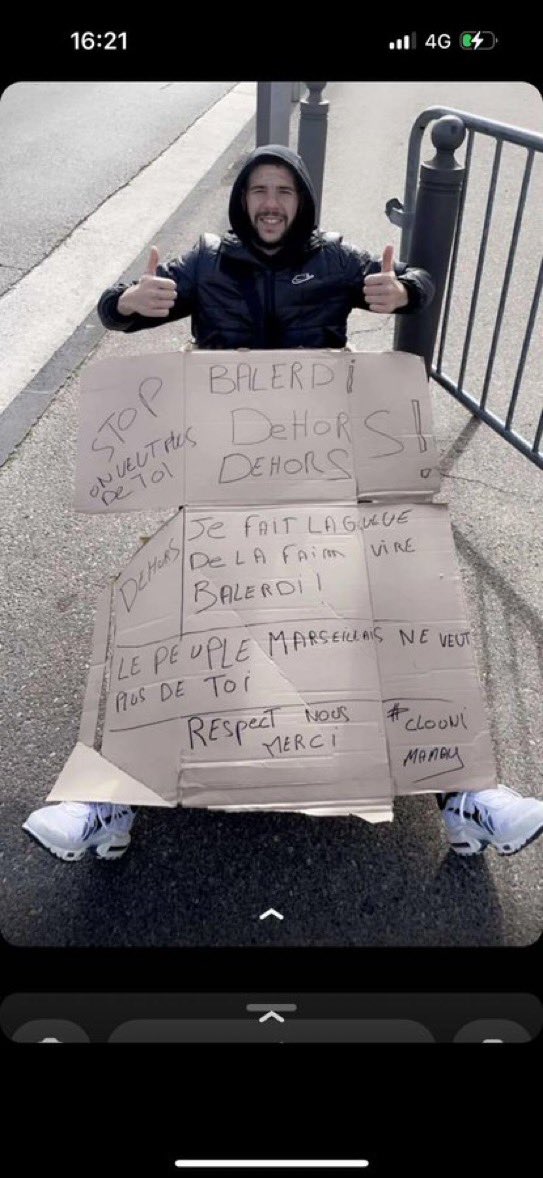 16:21
4G
STOP
ON VEUT PLUS
DE TOI
BALERDi
DeHORS!
DEHORS
DEHORS
Je FAIT LA GUEUE
De LA FAim VIRE
BALERDI!
LE PEUPLE MARSEILLAIS NE VEUT
PLUS DE TOi
REspecT NOUS
MERCi
#CLOONI
MAMAY